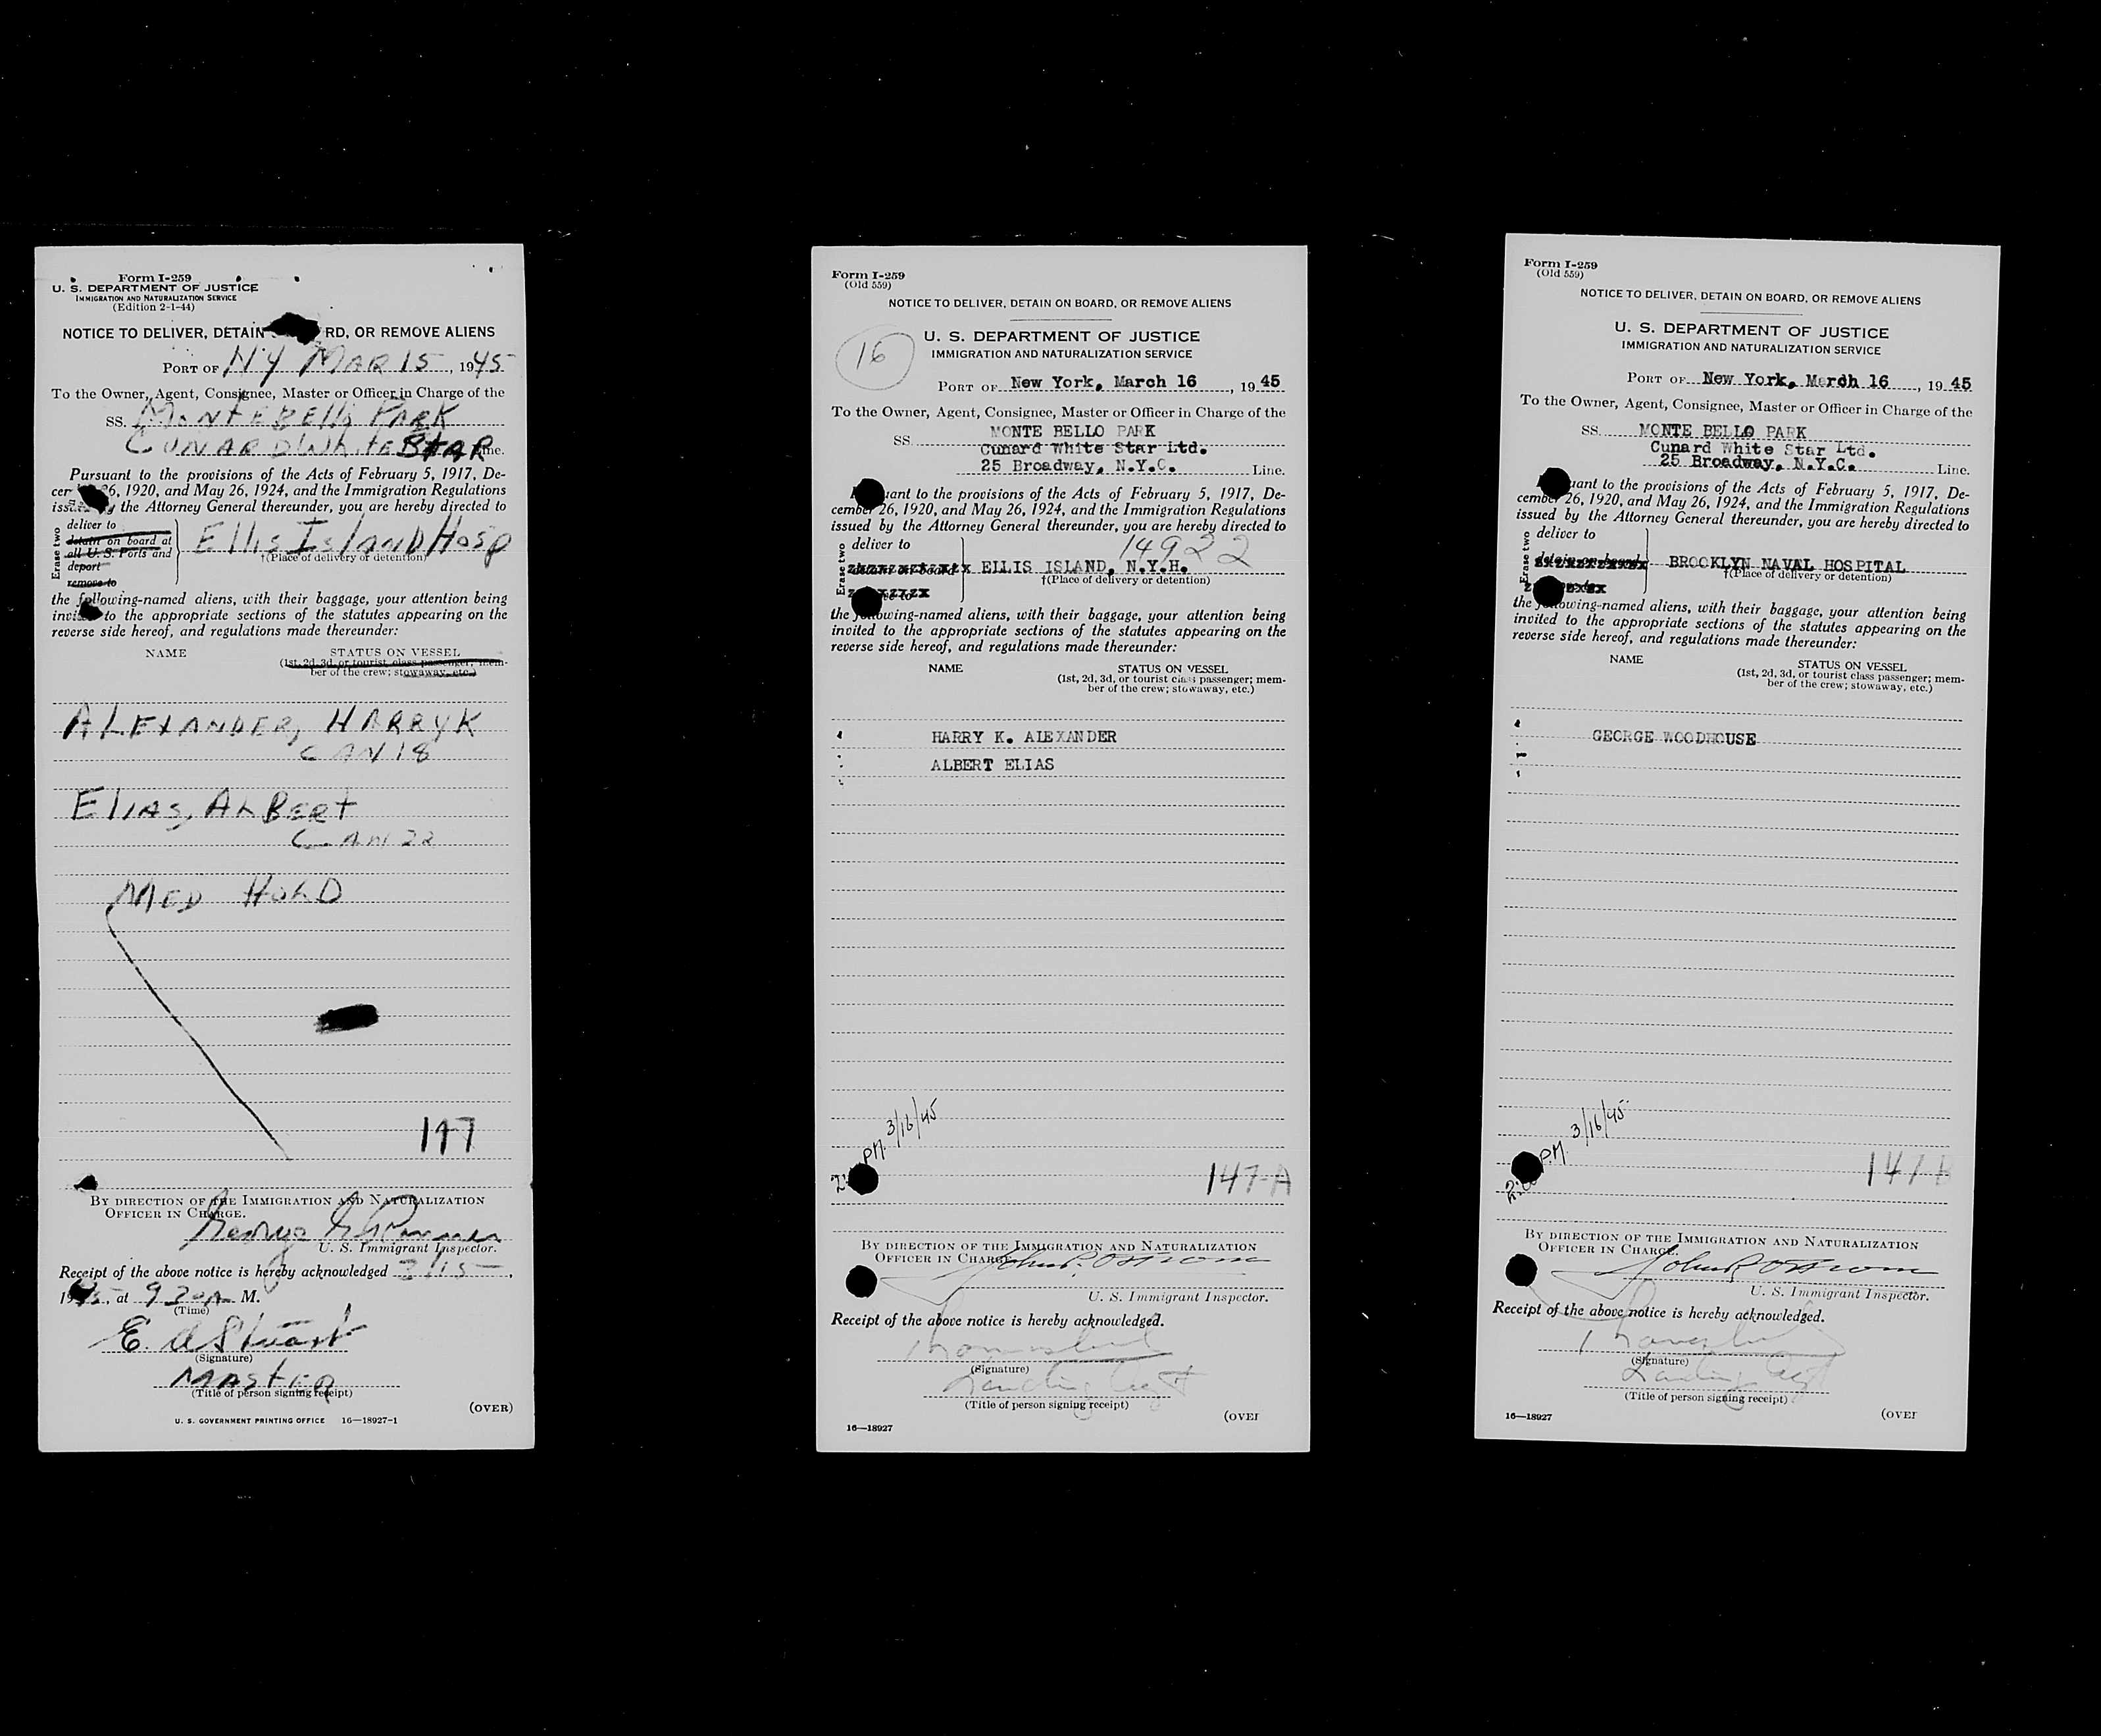 Form I-259
U. S. DEPARTMENT OF JUSTICE
IMMIGRATION AND NATURALIZATION SERVICE
(Edition 2-1-44)
NOTICE TO DELIVER, DETAIN RD, OR REMOVE ALIENS
PORT OF NY MAR 15, 1945
To the Owner, Agent, Consignee, Master or Officer in Charge of the
SS. MONTEBELLO PARK
CUNARD White STAR Line.
Pursuant to the provisions of the Acts of February 5, 1917, De-
cem 26, 1920, and May 26, 1924, and the Immigration Regulations
issued by the Attorney General thereunder, you are hereby directed to
Erase two
deliver to
detain on board at
all U. S. Ports and
deport
remove to
Ellis Island Hosp
†(Place of delivery or detention)
the following-named aliens, with their baggage, your attention being
invited to the appropriate sections of the statutes appearing on the
reverse side hereof, and regulations made thereunder:
NAME STATUS ON VESSEL
(1st, 2d, 3d, or tourist class passenger; mem-
ber of the crew; stowaway, etc.)
ALEXANDER, HARRY K
CAN 18
ELIAS, ALBERT
CAN 22
MED HOLD
147
BY DIRECTION OF THE IMMIGRATION AND NATURALIZATION
OFFICER IN CHARGE.
George
U. S. Immigrant Inspector.
Receipt of the above notice is hereby acknowledged 3/15,
1945, at 9 20 A M.
(Time)
E. A Stuart
(Signature)
MASTER
(Title of person signing receipt)
(OVER)
U. S. GOVERNMENT PRINTING OFFICE 16—18927-1
Form I-259
(Old 559)
NOTICE TO DELIVER, DETAIN ON BOARD, OR REMOVE ALIENS
16
U. S. DEPARTMENT OF JUSTICE
IMMIGRATION AND NATURALIZATION SERVICE
PORT OF New York, March 16, 1945
To the Owner, Agent, Consignee, Master or Officer in Charge of the
SS. MONTE BELLO PARK
Cunard White Star Ltd.
25 Broadway, N.Y.C. Line.
uant to the provisions of the Acts of February 5, 1917, De-
cember 26, 1920, and May 26, 1924, and the Immigration Regulations
issued by the Attorney General thereunder, you are hereby directed to
Erase two
deliver to
14922
detain on board
ELLIS ISLAND, N.Y.H.
†(Place of delivery or detention)
the following-named aliens, with their baggage, your attention being
invited to the appropriate sections of the statutes appearing on the
reverse side hereof, and regulations made thereunder:
NAME STATUS ON VESSEL
(1st, 2d, 3d, or tourist class passenger; mem-
ber of the crew; stowaway, etc.)
HARRY K. ALEXANDER
ALBERT ELIAS
PM. 3/16/45
147-A
BY DIRECTION OF THE IMMIGRATION AND NATURALIZATION
OFFICER IN CHARGE.
John
U. S. Immigrant Inspector.
Receipt of the above notice is hereby acknowledged.
(Signature)
Landing Agt
(Title of person signing receipt)
16—18927 (OVER
Form I-259
(Old 559)
NOTICE TO DELIVER, DETAIN ON BOARD, OR REMOVE ALIENS
U. S. DEPARTMENT OF JUSTICE
IMMIGRATION AND NATURALIZATION SERVICE
PORT OF New York, March 16, 1945
To the Owner, Agent, Consignee, Master or Officer in Charge of the
SS. MONTE BELLO PARK
Cunard White Star Ltd.
25 Broadway, N.Y.C. Line.
uant to the provisions of the Acts of February 5, 1917, De-
cember 26, 1920, and May 26, 1924, and the Immigration Regulations
issued by the Attorney General thereunder, you are hereby directed to
Erase two
deliver to
detain on board
BROOKLYN NAVAL HOSPITAL
†(Place of delivery or detention)
the following-named aliens, with their baggage, your attention being
invited to the appropriate sections of the statutes appearing on the
reverse side hereof, and regulations made thereunder:
NAME STATUS ON VESSEL
(1st, 2d, 3d, or tourist class passenger; mem-
ber of the crew; stowaway, etc.)
GEORGE WOODHOUSE
P.M. 3/16/45
147 B
BY DIRECTION OF THE IMMIGRATION AND NATURALIZATION
OFFICER IN CHARGE.
John
U. S. Immigrant Inspector.
Receipt of the above notice is hereby acknowledged.
(Signature)
Landing Agt
(Title of person signing receipt)
16—18927 (OVER